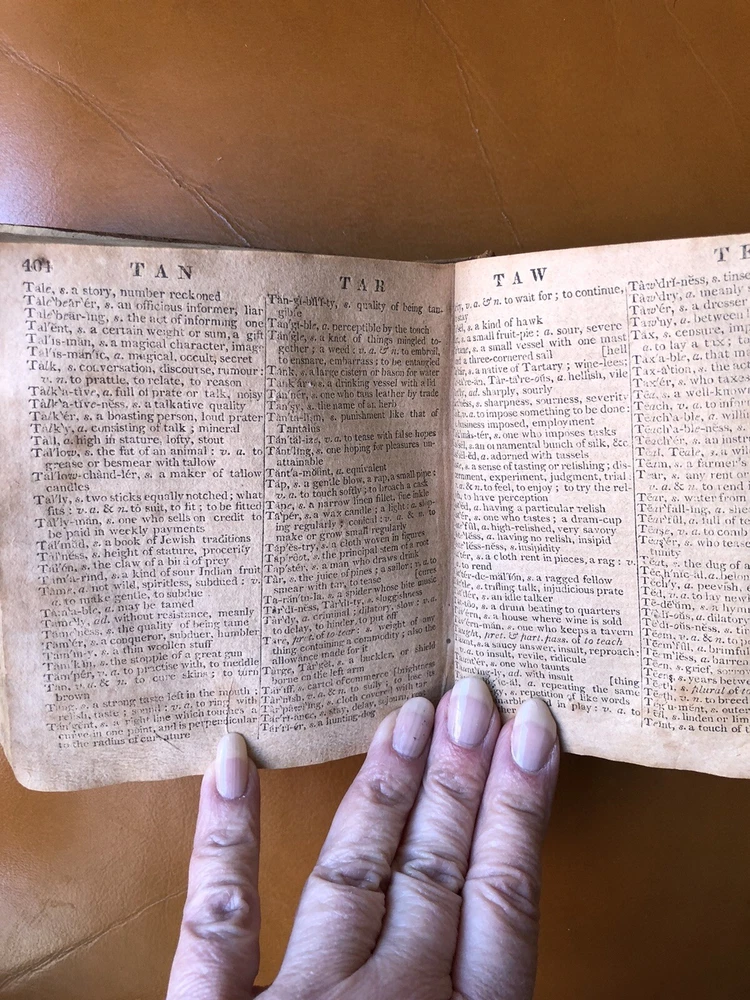 404 TAN
Tale, s. a story, number reckoned
Tale'bear'ér, s. an officious informer, liar
Tale'bear-ing, s. the act of informing one
Tal'ént, s. a certain weight or sum, a gift
Tal'is-man, s. a magical character, image
Tal'is-man'ic, a. magical, occult, secret
Talk, s. conversation, discourse, rumour:
v. n. to prattle, to relate, to reason
Talk'a-tive, a. full of prate or talk, noisy
Talk'a-tive-ness, s. a talkative quality
Talk'ér, s. a boasting person, loud prater
Talk'y, a. consisting of talk; mineral
Tall, a. high in stature, lofty, stout
Tal'low, s. the fat of an animal: v. a. to
grease or besmear with tallow
Tal'low-chand-lér, s. a maker of tallow
candles
Tal'ly, s. two sticks equally notched; what
fits: v. a. & n. to suit, to fit; to be fitted
Tal'ly-man, s. one who sells on credit to
be paid in weekly payments
Tal'mud, s. a book of Jewish traditions
Tal'ness, s. height of stature, procerity
Tal'ón, s. the claw of a bird of prey
Tam'a-rind, s. a kind of sour Indian fruit
Tame, a. not wild, spiritless, subdued: v.
a. to make gentle, to subdue
Tam'a-ble, a. may be tamed
Tame'ly, ad. without resistance, meanly
Tame'ness, s. the quality of being tame
Tam'ér, s. a conqueror, subduer, humbler
Tam'my, s. a thin woollen stuff
Tam'kin, s. the stopple of a great gun
Tam'pér, v. a. to practise with, to meddle
Tan, v. a. & n. to cure skins; to turn
brown
Tang, s. a strong taste left in the mouth;
relish, taste; a sound: v. n. to ring with
Tan'gent, s. a right line which touches a
curve in one point, and is perpendicular
to the radius of curvature
TAR
Tan-gi-bil'i-ty, s. quality of being tan-
gible
Tan'gi-ble, a. perceptible by the touch
Tan'gle, s. a knot of things mingled to-
gether; a weed: v. a. & n. to embroil,
to ensnare, embarrass; to be entangled
Tank, s. a large cistern or bason for water
Tank'ard, s. a drinking vessel with a lid
Tan'nér, s. one who tans leather by trade
Tan'sy, s. the name of an herb
Tan'ta-lism, s. punishment like that of
Tantalus
Tan'tal-ize, v. a. to tease with false hopes
Tant'ling, s. one hoping for pleasures un-
attainable
Tant'a-mount, a. equivalent
Tap, s. a gentle blow, a rap, small pipe:
v. a. to touch softly; to broach a cask
Tape, s. a narrow linen fillet, fine inkle
Ta'pér, s. a wax candle; a light: a. slop-
ing regularly; conical: v. a. & n. to
make or grow small regularly
Tap'es-try, s. a cloth woven in figures
Tap'root, s. the principal stem of a root
Tap'stér, s. a man who draws drink
Tar, s. the juice of pines; a sailor: v. a. to
smear with tar, to tease [cures
Ta-ran'tu-la, s. a spider whose bite music
Tar'di-ness, Tardi'i-ty, s. sluggishness
Tar'dy, a. criminal; dilatory, slow: v. a.
to delay, to hinder, to put off
Tare, pret. of to tear: s. weight of any
thing containing a commodity; also the
allowance made for it
Targe, Tar'get, s. a buckler, or shield
worn on the left arm
Tar'iff, s. cartel of commerce [brightness
Tar'nish, v. a. & n. to sully; to lose its
Tar-paw'ling, s. cloth covered with tar
Tar'ri-ance, s. stay, delay, sojourn
Tar'ri-ér, s. a hunting-dog
TAW
v. a. & n. to wait for; to continue,
s. a kind of hawk
s. a small fruit-pie: a. sour, severe
s. a small vessel with one mast
a three-cornered sail [hell
s. a native of Tartary; wine-lees;
Tar'ta-re-ous, a. hellish, vile
ad. sharply, sourly
s. sharpness, sourness, severity
v. a. to impose something to be done:
business imposed, employment
s. one who imposes tasks
s. an ornamental bunch of silk, &c.
a. adorned with tassels
s. a sense of tasting or relishing; dis-
cernment, experiment, judgment, trial:
& n. to feel, to enjoy; to try the rel-
to have perception
a. having a particular relish
s. one who tastes; a dram-cup
a. high-relished, very savory
a. having no relish, insipid
s. insipidity
s. a cloth rent in pieces, a rag: v.
to rend
s. a ragged fellow
s. trifling talk, injudicious prate
s. an idle talker
s. a drum beating to quarters
s. a house where wine is sold
s. one who keeps a tavern
pret. & part. pass. of to teach
s. a saucy answer, insult, reproach:
to insult, revile, ridicule
s. one who taunts
ad. with insult [thing
a. repeating the same
s. repetition of like words
in play: v. a. to
TE
Taw'dri-ness, s. tinse
Taw'dry, a. meanly
Taw'ér, s. a dresser
Taw'ny, a. between
Tax, s. censure, imp
to lay a tax; to
Tax'a-ble, a. that m
Tax-a'tion, s. the act
Tax'ér, s. who taxes
Tea, s. a well-know
Teach, v. a. to infor
Teach'a-ble, a. willi
Teach'a-ble-ness, s.
Teach'ér, s. an instr
Teal, s. a wild
Team, s. a farmer's
Tear, s. any rent
Tear, s. water from
Tear'fall-ing, a. shed
Tear'ful, a. full of te
Tease, v. a. to comb
Teas'ér, s. who tease
Teat, s. the dug of a
Tech'nic-al, a. belon
Tech'y, a. peevish,
Ted, v. a. to lay new
Te-de'um, s. a hymn
Te'di-ous, a. dilatory
Te'di-ous-ness, s. t
Teem, v. a. & n. to p
Teem'ful, a. brimful
Teem'less, a. barren
Teen, s. grief, sorrow
Teens, s. years between
Teeth, s. plural of t
v. n. to breed
Teg'u-ment, s. outer
s. linden or lim
Teint, s. a touch of